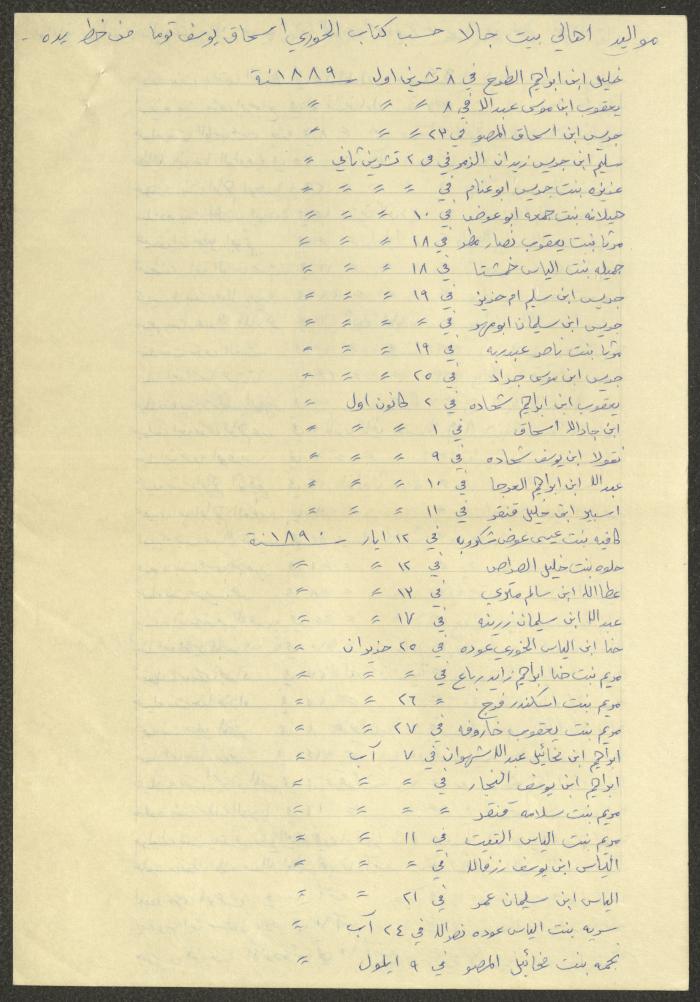 مواليد اهالي بيت جالا حسب كتاب الخوري اسحاق يوسف توما من خط يده -
خليل ابن ابراهيم الطوح في ٨ تشرين اول سنة ١٨٨٩
يعقوب ابن موسى عبدالله في ٨ = = =
جريس ابن اسحاق المصو في ٢٣ = = =
سليم ابن جريس زيدان الزمر في ٢ تشرين ثاني =
عزيزه بنت جريس ابو غنام في = = = =
هيلانه بنت جمعه ابو عوض في ١٠ = = =
مرتا بنت يعقوب نصار مطر في ١٨ = = =
جميله بنت الياس خمشتا في ١٨ = = =
جريس ابن سليم ام حزيز في ١٩ = = =
جريس ابن سليمان ابو مهر في = = = =
مرتا بنت ناصر عبدربه في ١٩ = = =
جريس ابن موسى حداد في ٢٥ = = =
يعقوب ابن ابراهيم شحاده في ٢ كانون اول =
ابن جادالله اسحاق في ١ = = =
نقولا ابن يوسف شحاده في ٩ = = =
عبدالله ابن ابراهيم العرجا في ١٠ = = =
اسبير ابن خليل قنقر في ١١ = = =
كافيه بنت عيسى عوض شكوريه في ١٢ ايار سنة ١٨٩٠
حلوه بنت خليل الصراص في ١٢ = =
عطاالله ابن سالم متري في ١٣ = =
عبدالله ابن سليمان زرينه في ١٧ = =
حنا ابن الياس الخوري عوده في ٢٥ حزيران =
مريم بنت حنا ابراهيم زايد رباع في = = =
مريم بنت اسكندر فرج = ٢٦ = =
مريم بنت يعقوب خاروفه في ٢٧ = =
ابراهيم ابن مخائيل عبدالله شهوان في ٧ آب =
ابراهيم ابن يوسف النجار في = = =
مريم بنت سلامه قنقر = = = =
مريم بنت الياس التيت في ١١ = =
الياس ابن يوسف رزقالله في = = =
الياس ابن سليمان عمر في ٢١ = =
سريه بنت الياس عوده نصرالله في ٢٤ آب =
نجمه بنت مخائيل المصو في ٩ ايلول =